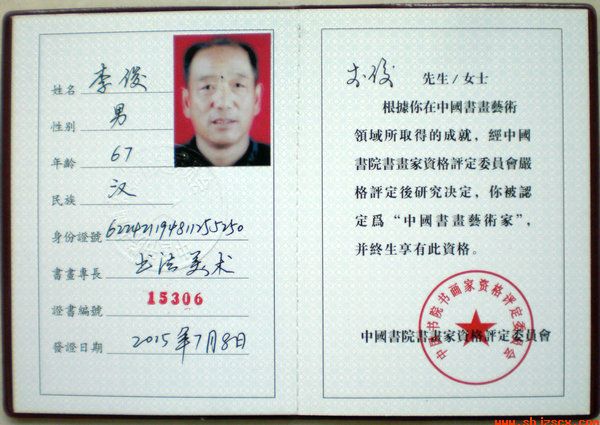 姓名 李俊
性别 男
年齡 67
民族 汉
身份證號 622421194811255250
書畫專長 书法美术
證書編號 15306
發證日期 2015年7月8日
李俊 先生/女士
根據你在中國書畫藝術
領域所取得的成就，經中國
書院書畫家資格評定委員會嚴
格評定後研究決定，你被認
定爲“中國書畫藝術家”，
并終生享有此資格。
中国书院书画家资格评定委员会
中國書院書畫家資格評定委員會